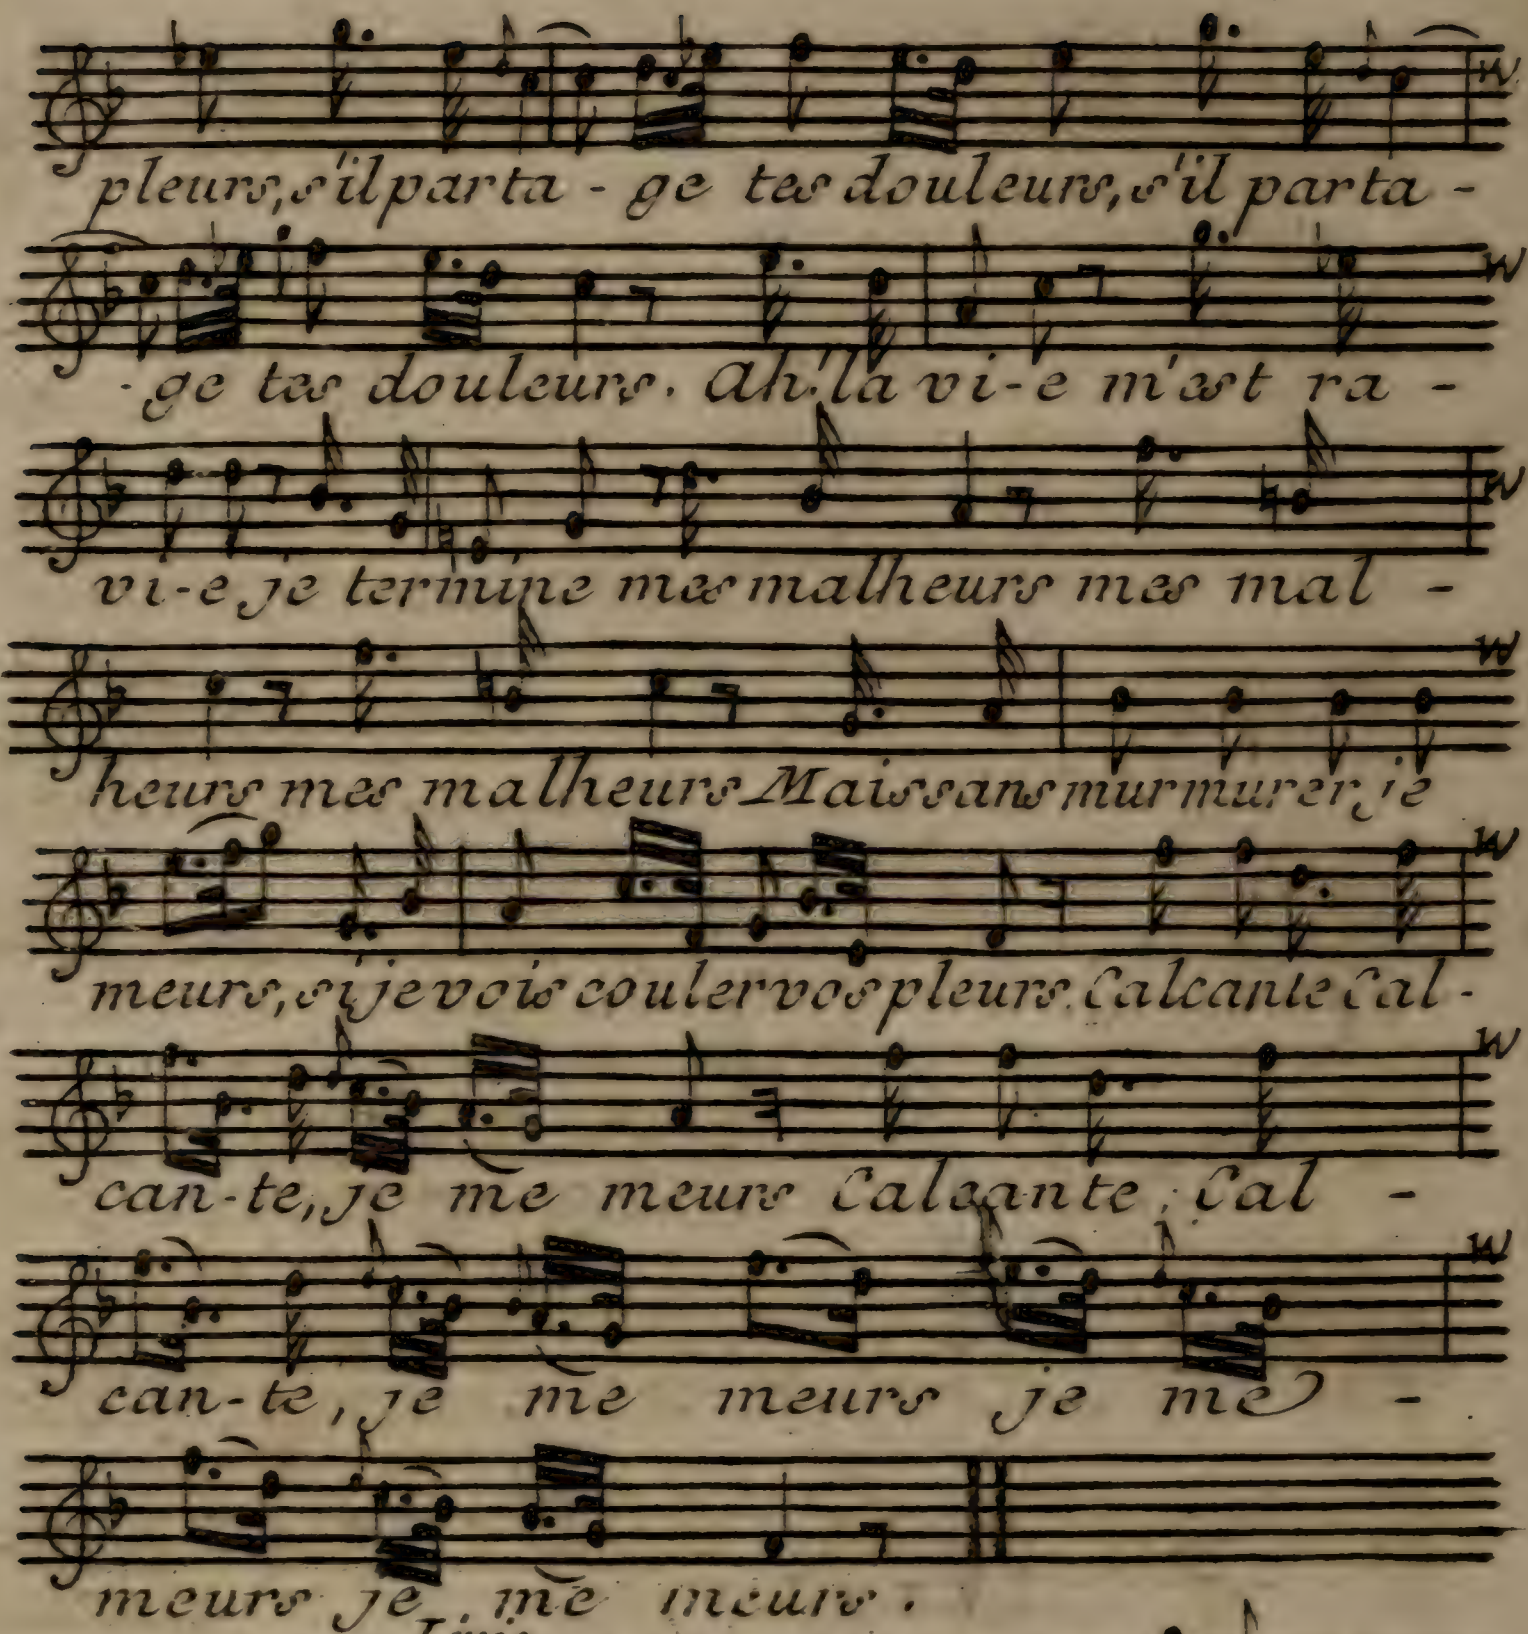 pleurs, s'il parta - ge tes douleurs, s'il parta -
- ge tes douleurs. Ah! la vi-e m'est ra -
vi-e je termine mes malheurs mes mal -
heurs mes malheurs Mais sans murmurer, je
meurs, si je vois couler vos pleurs. Calcante Cal -
can-te, je me meurs Calcante, Cal -
can-te, je me meurs je me -
meurs je me meurs.